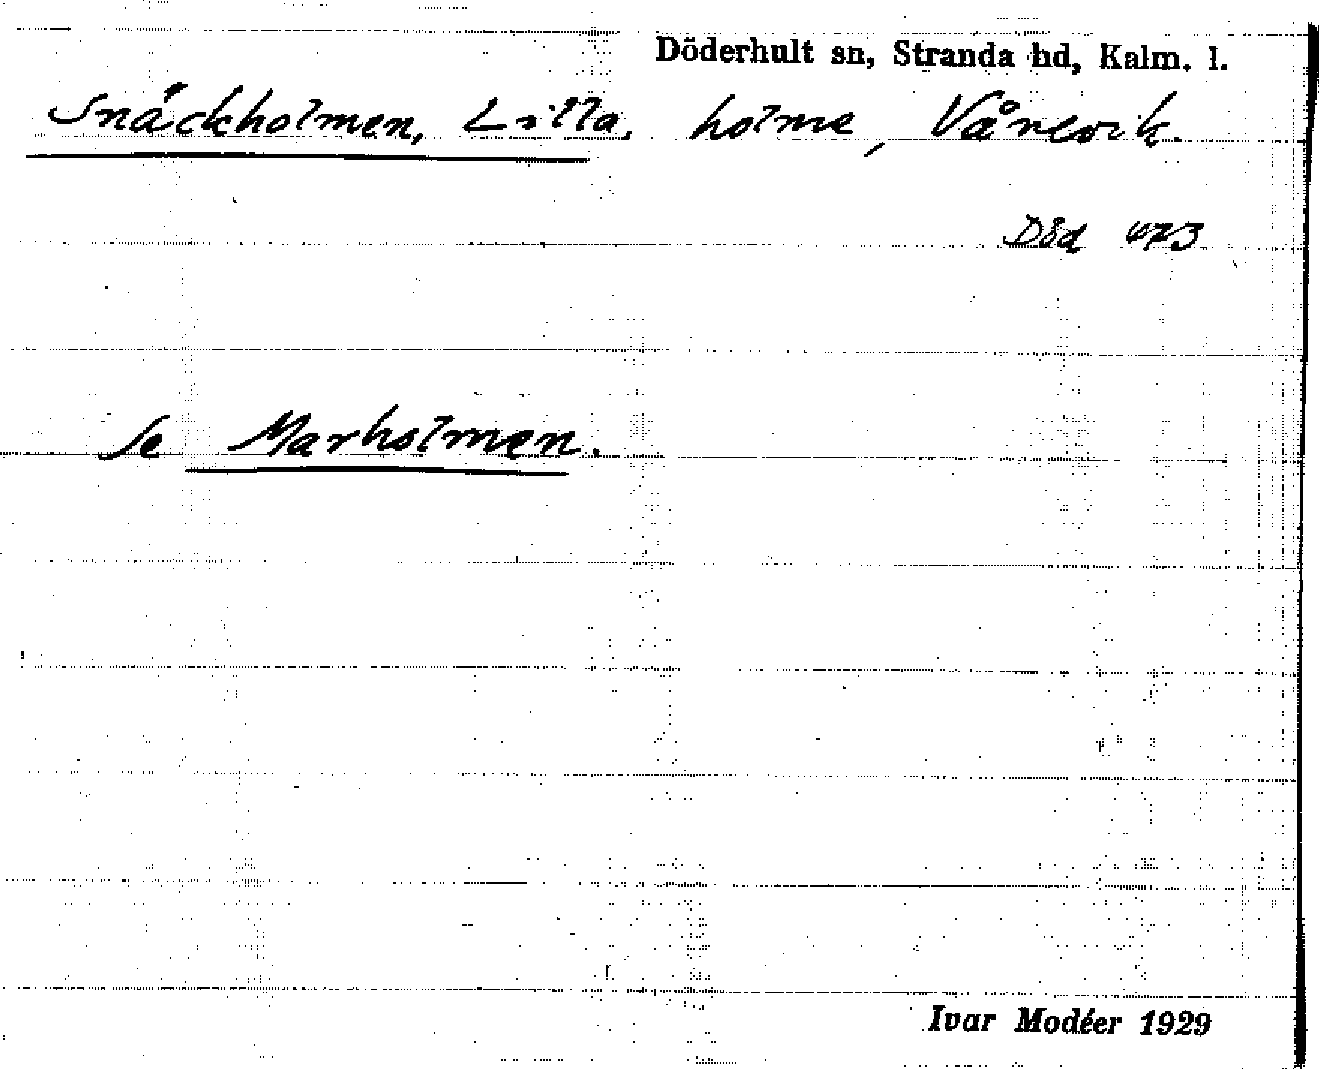 Döderhult sn, Stranda hd, Kalm. l.
Snäckholmen, Lilla, holme, Vånevik.
Död 473
Se Marholmen.
Ivar Modéer 1929